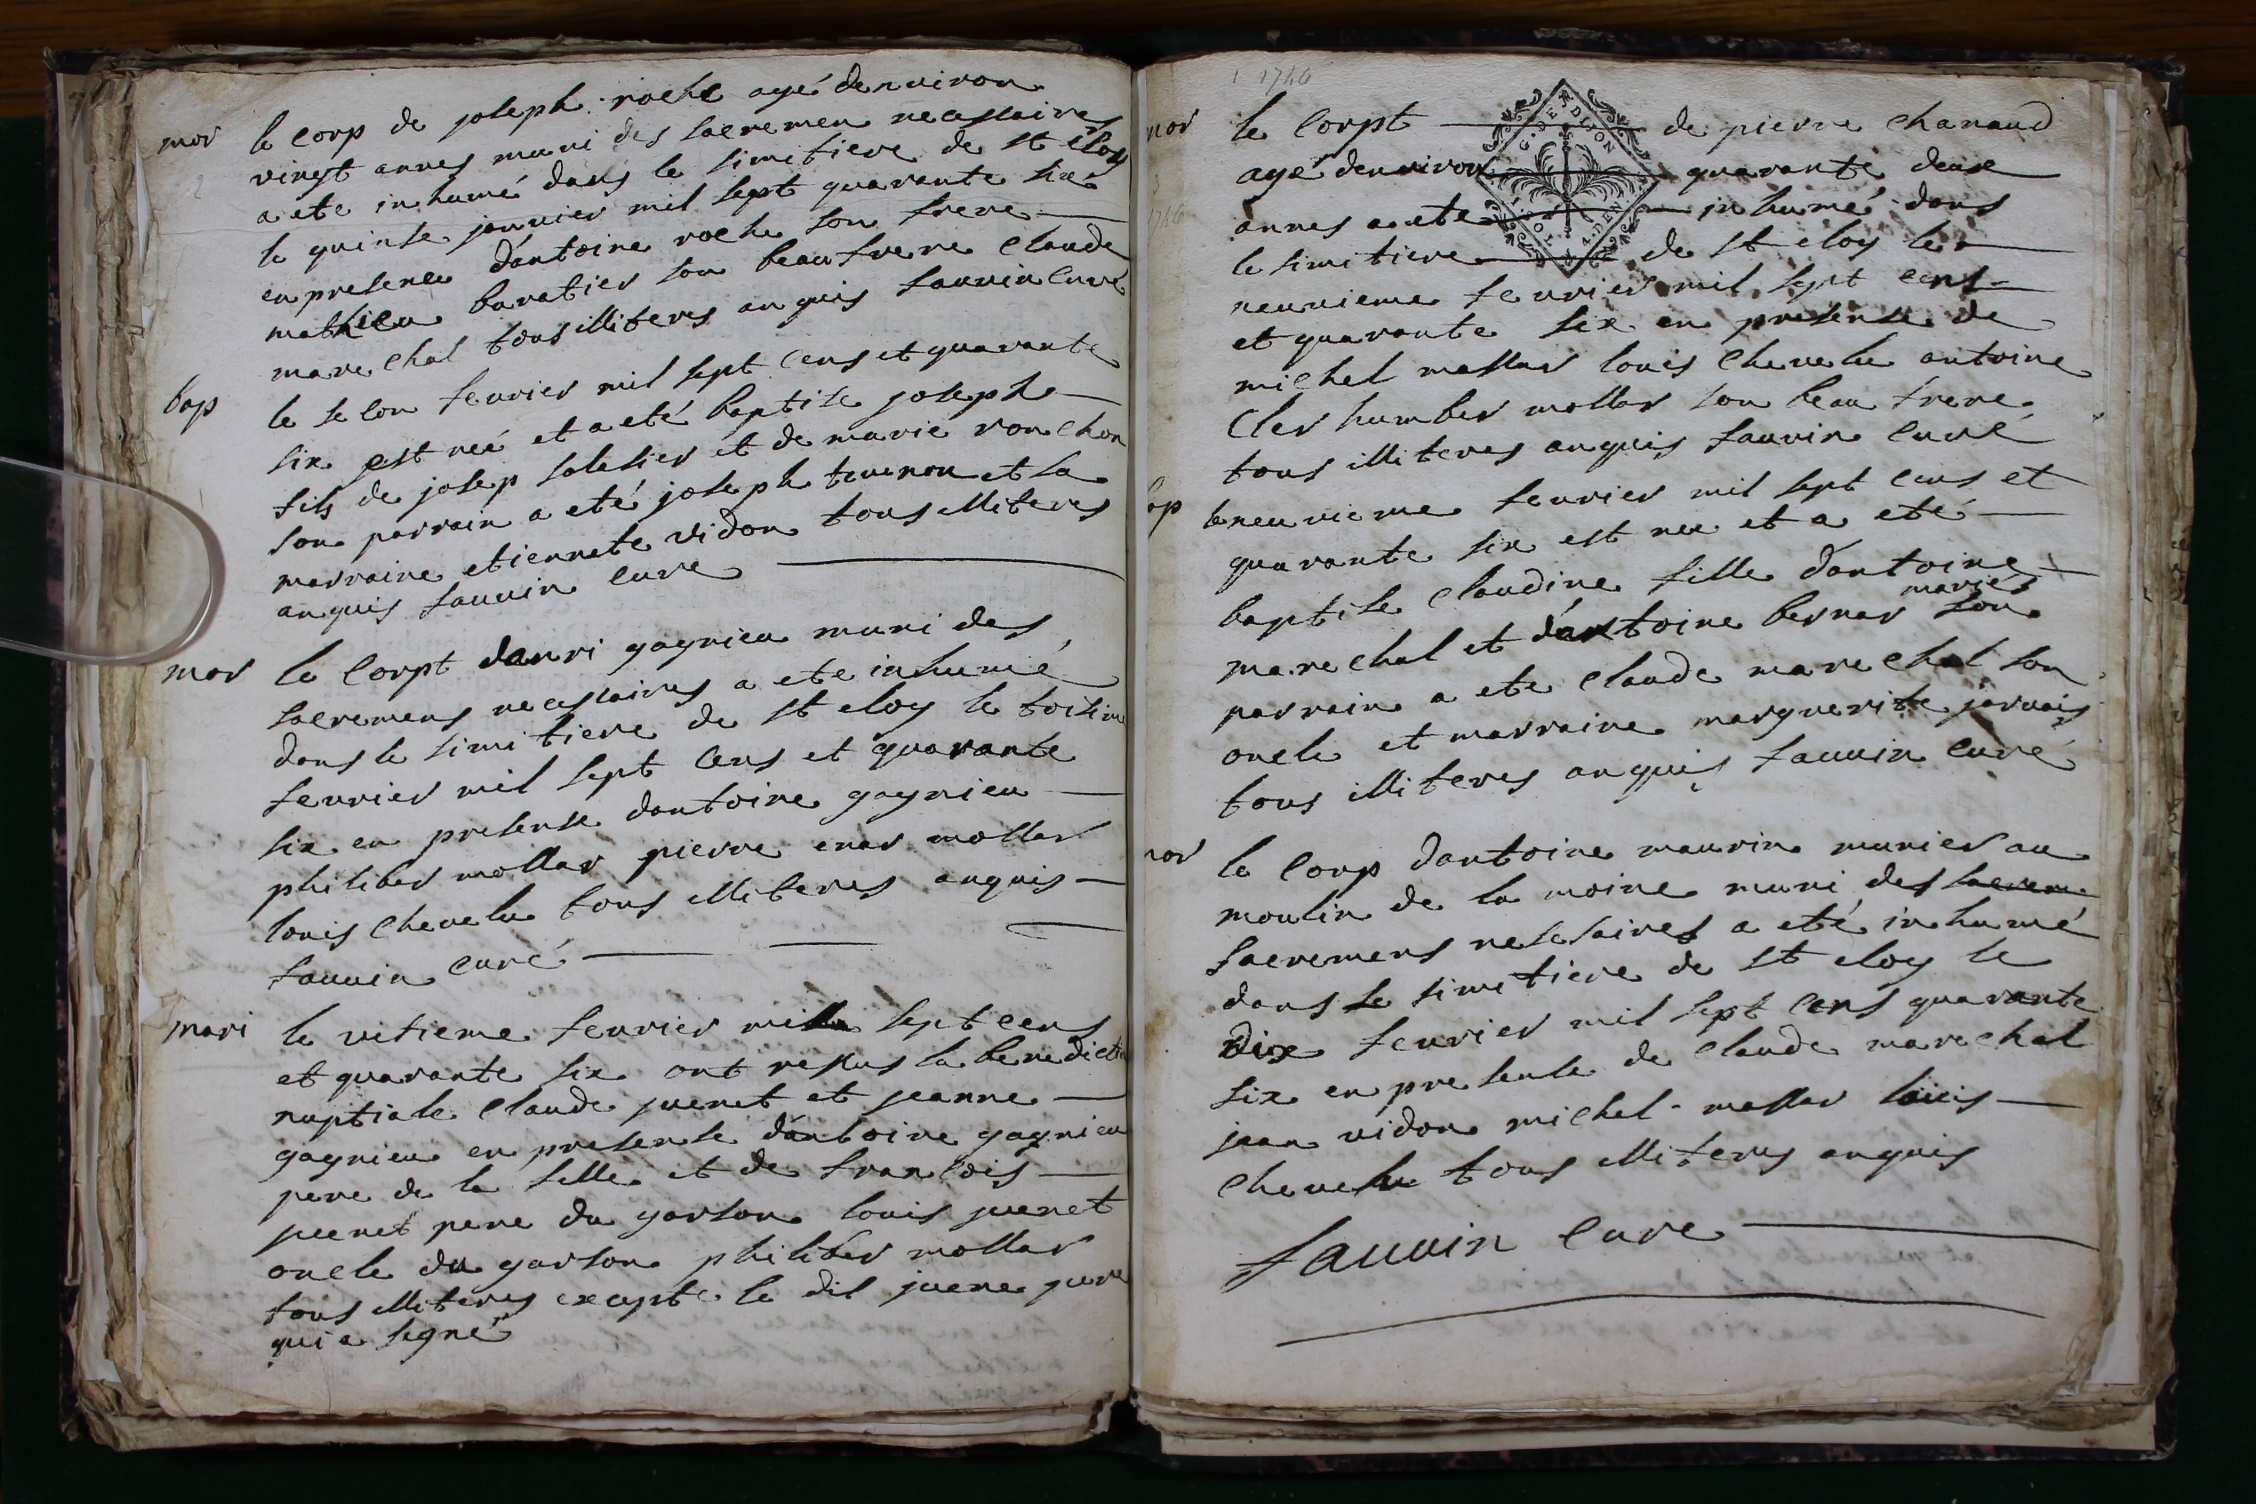 mor le corp de joseph roche agé denuiron
vingt annes muni des sacremen necessaires
a ete inhumé dans le simitiere de st eloy
le quinse januier mil sept quarante six
en presence dantoine roche son frere
mathieu baratier son beau frere claude
marechal tous illiteres anquis fauuin curé
bap le selon feurier mil sept cens et quarante
six est neé et a eté baptise joseph
fils de josep salesier et de marie ronchon
son parrain a eté joseph teuenon et sa
marraine etiennete vidon tous illiteres
anquis fauuin cure
mor le corpt danri gagnieu muni des
sacremens necessaires a ete inhumé
dans le simitiere de st eloy le toisime
feurier mil sept cens et quarante
six en presense dantoine gagnieu
philiber mollar pierre enar mollar
louis cheuelu tous illiteres anquis
fauuin curé
mari le vitieme feurier mille sept cens
et quarante six ont ressus la benedictio
nuptiale claude juenet et jeanne
gagnieu en presense dantoine gagnieu
pere de la fille et de francois
juenet pere du garson louis juenet
oncle du garson philiber mollar
tous illiteres excepte le dit juene pere
qui a segné
1 1746
mor le corpt de pierre chanaud
agé denuiron quarante deux
annes a ete inhumé dans
le simitiere de st eloy le
neuuieme feurier mil sept cens
et quarante six en presense de
michel mollar louis cheuelu antoine
cler humber mollar son beau frere
tous illiteres anquis fauuin curé
bap le neuuieme feurier mil sept cens et
quarante six est nee et a eté
baptise claudine fille dantoine
mariés
marechal et dantoine bernar son
parrain a ete claude marechal son
oncle et marraine marguerite jaruais
tous illiteres anquis fauuin curé
mor le corp dantoine maurin munier au
moulin de la moine muni des sacrem
sacremens nesesaires a eté inhumé
dans le simitiere de st eloy le
dix feurier mil sept cens quarante
six en presense de claude marechal
jean vidon michel mollar louis
cheuelu tous illiteres anquis
fauuin cure
G. DE DIJON